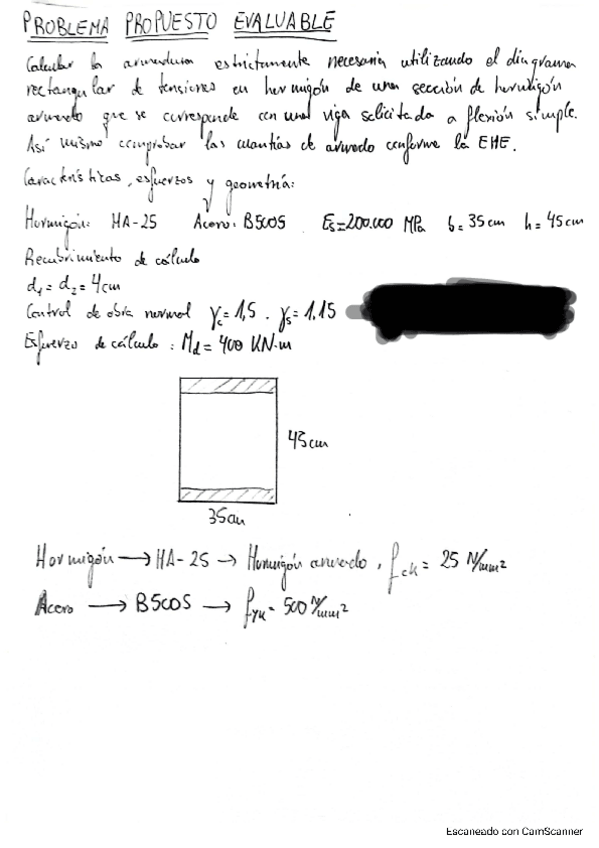 PROBLEMA PROPUESTO EVALUABLE
Calcular la armadura estrictamente necesaria utilizando el diagrama
rectangular de tensiones en hormigón de una sección de hormigón
armado que se corresponde con una viga solicitada a flexión simple.
Así mismo comprobar las cuantías de armado conforme la EHE.
Características, esfuerzos y geometría:
Hormigón: HA-25 Acero: B500S Es=200.000 MPa b=35cm h=45cm
Recubrimiento de cálculo
d1 = d2 = 4cm
Control de obra normal γc=1,5 . γs=1.15
Esfuerzo de cálculo : Md = 400 KN·m
45cm
35cm
Hormigón → HA-25 → Hormigón armado, fck = 25 N/mm²
Acero → B500S → fyk = 500 N/mm²
Escaneado con CamScanner